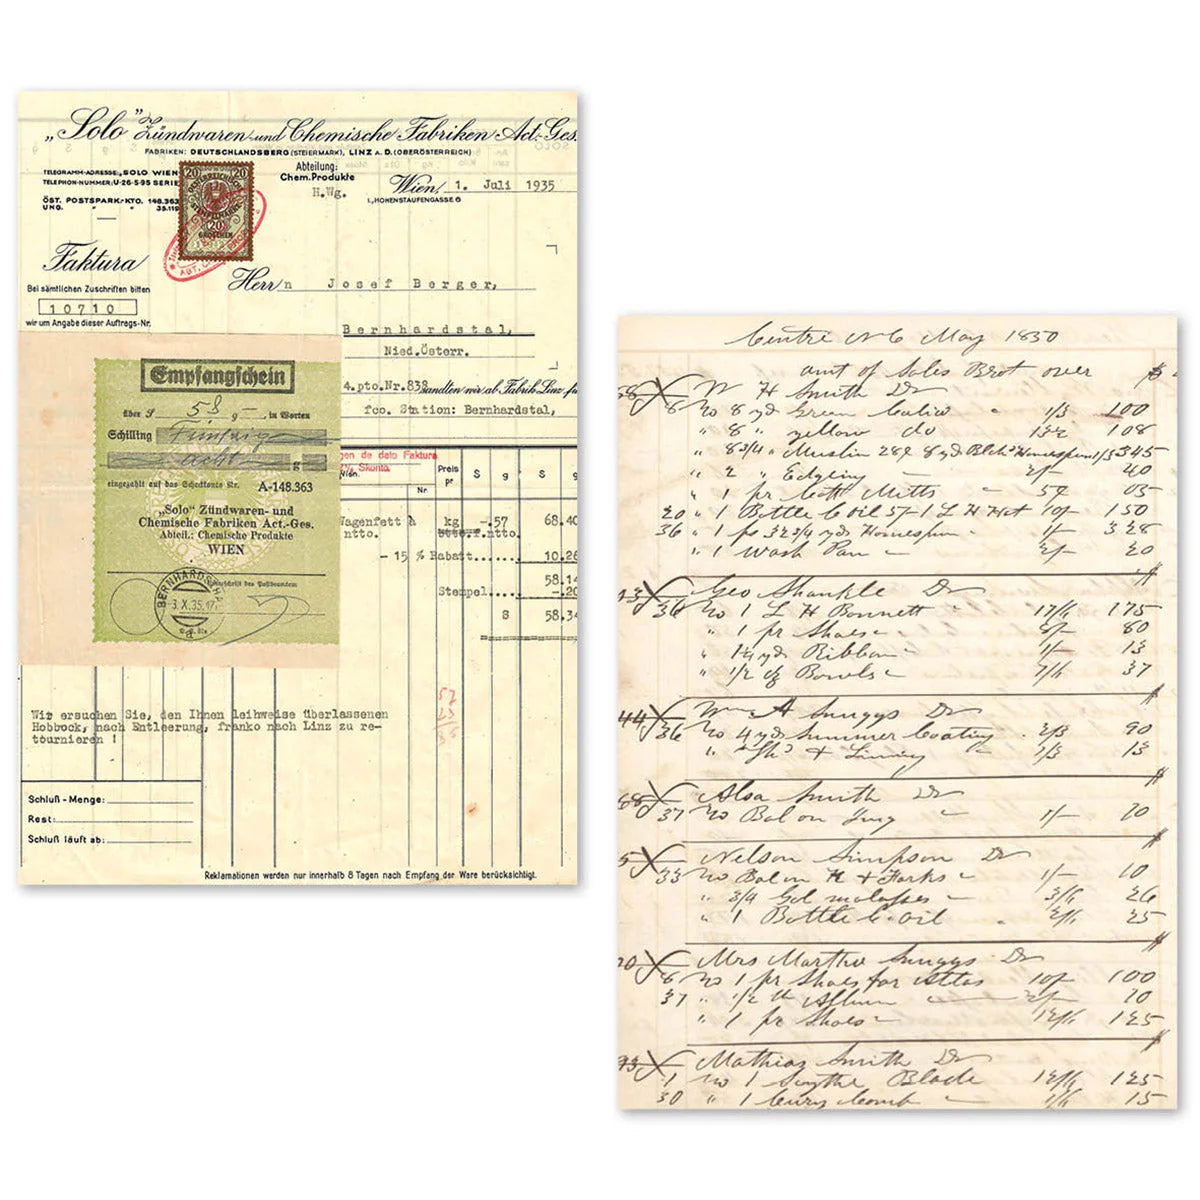 „Solo" Zündwaren- und Chemische Fabriken Act.-Ges.
FABRIKEN: DEUTSCHLANDSBERG (STEIERMARK), LINZ A.D. (OBERÖSTERREICH)
TELEGRAMM-ADRESSE: „SOLO WIEN
TELEPHON-NUMMER: U-26-5-95 SERIE
ÖST. POSTSPARK.-KTO. 148.363
UNG. " 35.119
20 20
20
GROSCHEN
Abteilung:
Chem. Produkte
H.Wg.
Wien, 1. Juli 1935
I., HOHENSTAUFENGASSE 6
Faktura
Herrn Josef Berger,
Bei sämtlichen Zuschriften bitten
10710
wir um Angabe dieser Auftrags-Nr.
Bernhardstal,
Nied.Österr.
4.pto.Nr.838 sandten wir ab Fabrik Linz
fco. Station: Bernhardstal,
Empfangschein
über S 58 g — in Worten
Schilling Fünfzig
acht g
eingezahlt auf das Scheckkonto Nr. A-148.363
„Solo" Zündwaren- und
Chemische Fabriken Act.-Ges.
Abteil.: Chemische Produkte
WIEN
Unterschrift des Postbeamten
BERNHARDSTHAL
3.X.35.17
gen de dato Faktura
% Skonto.
Nr.
Preis
pr
S g S g
Wagenfett à kg -.57 68.40
ntto. btto.f.ntto.
- 15 % Rabatt..... 10.26
58.14
Stempel..... -.20
S 58.34
Wir ersuchen Sie, den Ihnen leihweise überlassenen
Hobbock, nach Entleerung, franko nach Linz zu re-
tournieren !
Schluß - Menge:
Rest:
Schluß läuft ab:
Reklamationen werden nur innerhalb 8 Tagen nach Empfang der Ware berücksichtigt.
Centre N C May 1850
amt of Sales Brot over $
58 W H Smith Dr
8 To 8 yd Green Calico 1/3 100
" 8 " yellow do 108
" 8 3/4 " Muslin 8 yd Blch Homespun 1/3 345
" 2 " Edgeing 2/- 40
" 1 pr Cott Mitts 05
20 " 1 Bottle C oil 1 L H Hat 10/- 150
36 " 1 ps 32 3/4 yds Homespun 1/- 328
" 1 Wash Pan 2/- 20
Geo Shankle Dr
36 To 1 L H Bonnett 17/6 175
" 1 pr Shoes 8/- 80
" 1 1/4 yds Ribbon 1/- 13
" 1/2 Bowls 7/6 37
44 Wm A Suggs Dr
36 To 4 yd Summer Coating 2/3 90
" & Lining 1/3 13
68 Alsa Smith Dr
37 To Bal on 1/- 10
Nelson Simpson Dr
33 To Bal on K & Forks 1/- 10
" 3/4 Gal molasses 3/6 26
" 1 Bottle C oil 2/6 25
Mrs Martha Suggs Dr
8 To 1 pr Shoes for 10/- 100
37 " 1/2 lb Allum 10
" 1 pr Shoes 12/6 125
Mathias Smith Dr
1 To 1 Scythe Blade 12/6 125
30 " 1 Curry Comb 1/6 15